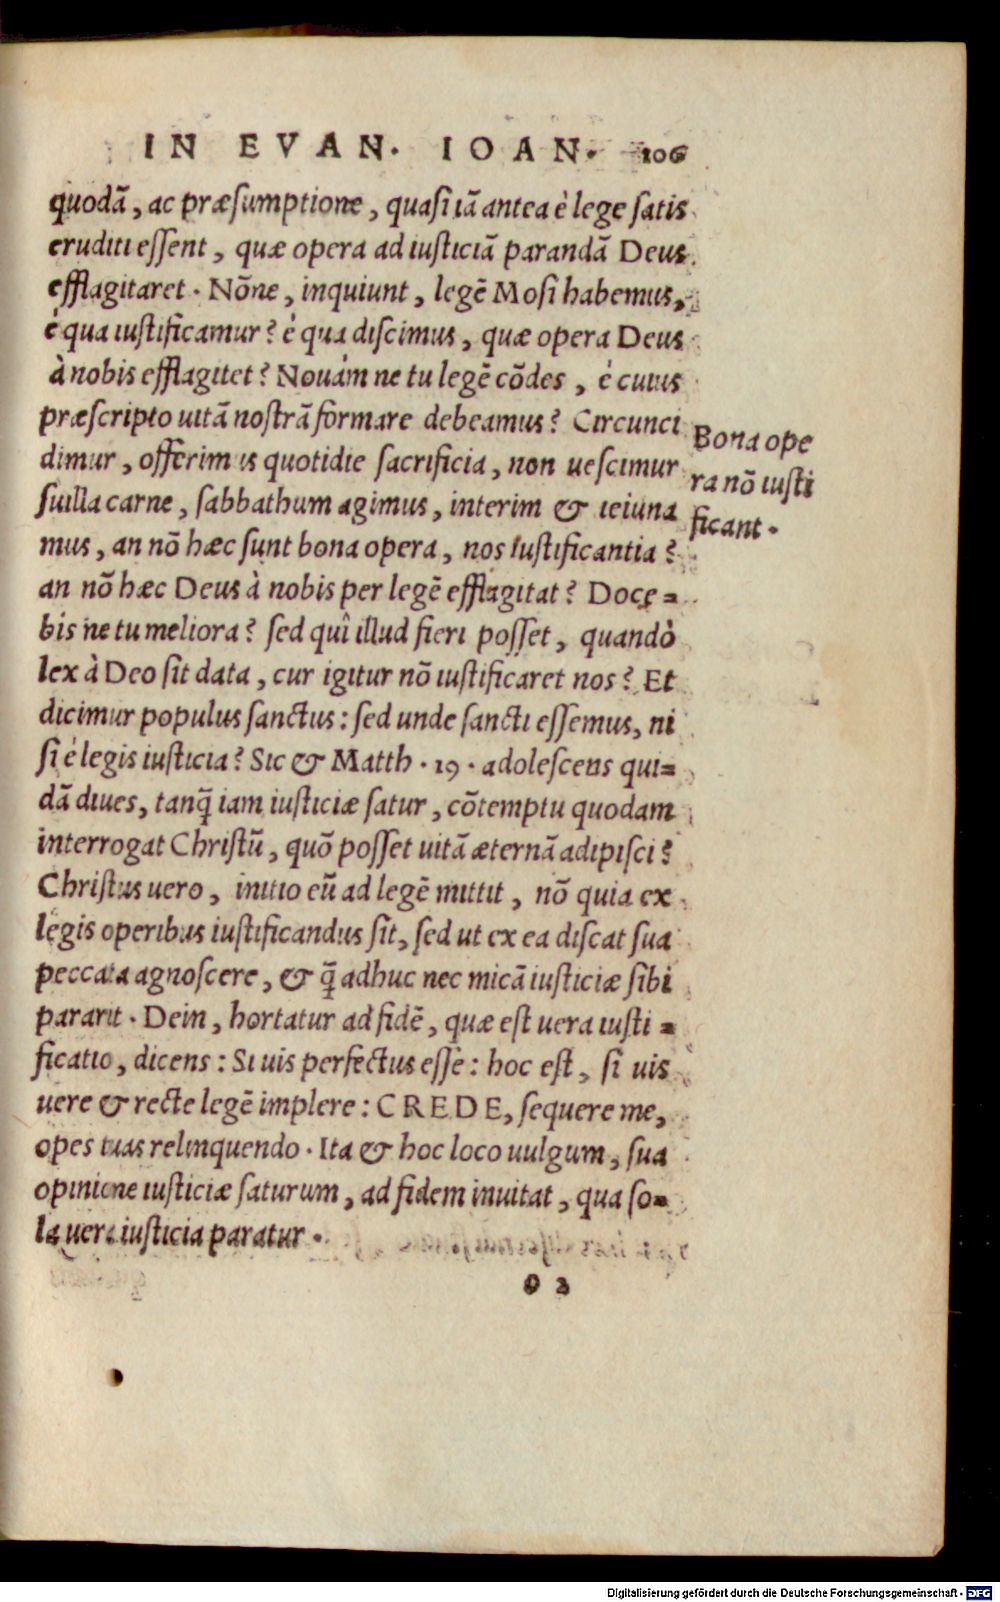 IN EVAN. IOAN. 106
quodã, ac præsumptione, quasi iã antea è lege satis
eruditi essent, quæ opera ad iusticiã parandã Deus
efflagitaret. Nõne, inquiunt, legẽ Mosi habemus,
è qua iustificamur? è qua discimus, quæ opera Deus
à nobis efflagitet? Nouám ne tu legẽ cõdes, è cuius
præscripto uitã nostrã formare debeamus? Circunci
dimur, offerimus quotidie sacrificia, non uescimur
suilla carne, sabbathum agimus, interim & ieiuna
mus, an nõ hæc sunt bona opera, nos iustificantia?
an nõ hæc Deus à nobis per legẽ efflagitat? Doce=
bis ne tu meliora? sed quî illud fieri posset, quandò
lex à Deo sit data, cur igitur nõ iustificaret nos? Et
dicimur populus sanctus: sed unde sancti essemus, ni
si è legis iusticia? Sic & Matth. 19. adolescens qui=
dã diues, tanq̃ iam iusticiæ satur, cõtemptu quodam
interrogat Christũ, quõ posset uitã æternã adipisci?
Christus uero, initio eũ ad legẽ mittit, nõ quia ex
legis operibus iustificandus sit, sed ut ex ea discat sua
peccata agnoscere, & q̃ adhuc nec micã iusticiæ sibi
pararit. Dein, hortatur ad fidẽ, quæ est uera iusti=
ficatio, dicens: Si uis perfectus esse: hoc est, si uis
uere & recte legẽ implere: CREDE, sequere me,
opes tuas relinquendo. Ita & hoc loco uulgum, sua
opinione iusticiæ saturum, ad fidem inuitat, qua so=
la uera iusticia paratur.
Bona ope
ra nõ iusti
ficant.
o 2
Digitalisierung gefördert durch die Deutsche Forschungsgemeinschaft - DFG